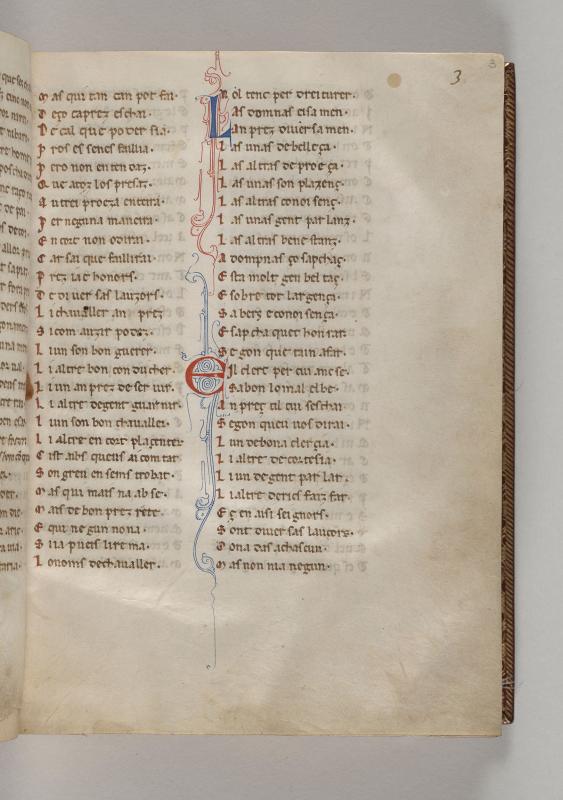 3
3
M as qui tan can pot fai·
D ezo caprez eschai·
D e cal que poder sia·
P ros es senes faillia·
P ero non en ten daz·
Q ue atoz los presaz·
A utrei proeza enteira·
P er neguna maneira·
E n tot non odirai·
C ar sai que faillirai·
P rez ia e honors·
D e diuersas lauzors·
L i chauallier an prez
S i com auzir podez·
L i un son bon guerer·
L i altre bon conducher·
L i un an prez de seruir·
L i altre de gent guarnir·
L i un son bon chauallier·
L i altre en cort plazentier
C ist aibs queus ai comtaz
S on greu ensems trobat·
M as qui mais na ab se·
M ais de bon prez rete·
E qui negun no na·
S i ia pueis lire ma·
L o noms de chauallier·
N ol tenc per dreiturer·
L as domnas eisamen·
A n prez diuersamen·
L as unas de belleça·
L as altras de proeça·
L as unas son plazenç·
L as altras conoisenç·
L as unas gent parlanz·
L as altras bene stanz·
A dompnas ço sapchaç·
E sta molt gen beltaç·
E sobre tot largença·
S abers e conoisença·
E sapcha quec honrar·
S egon que tain afar·
C il clerc per cui anc se·
S abon lo mal el be·
A n prez tal cui seschai·
S egon queu uos dirai·
L i un de bona clercia·
L i altre de cortesia·
L i un de gent parlar·
L i altre de rics faiz far·
E ç en aisi seignors·
S ont diuersas lauçors·
D ona das achascun·
M as non nia negun·